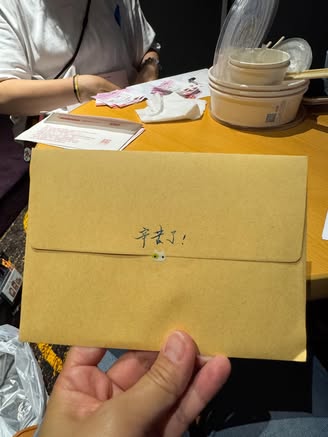 辛苦了!